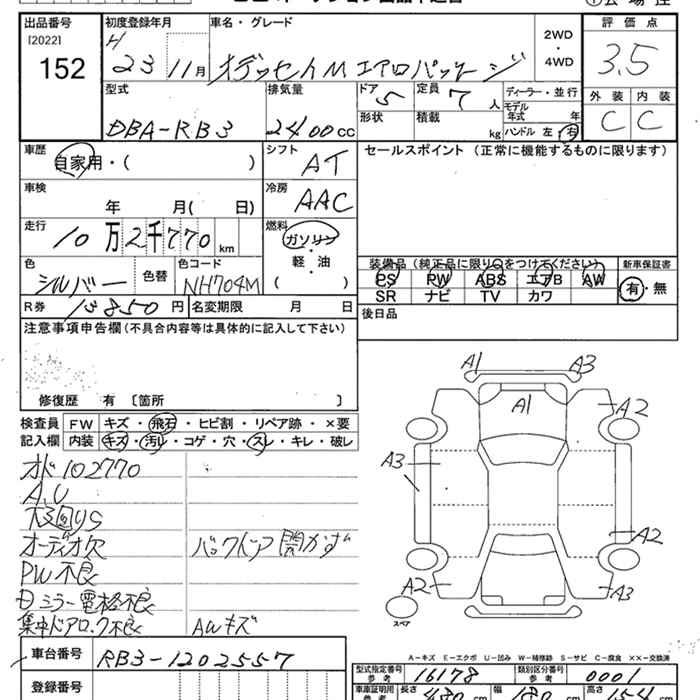 出品番号
[2022]
152
初度登録年月
H
23 11月
車名・グレード
オデッセイM エアロパッケージ
2WD
・
4WD
評価点
3.5
外装 内装
C C
型式
DBA-RB3
排気量
2400CC
ドア
5
定員
7人
形状
積載
kg
ディーラー・並行
モデル年式 年
ハンドル 左・右
車歴
自家用・( )
シフト
AT
セールスポイント (正常に機能するものに限ります)
車検
年 月( 日)
冷房
AAC
走行
10万2千770km
燃料
ガソリン
・
軽・油
( )
色
シルバー
色替
色コード
NH704M
装備品 (純正品に限り〇をつけてください)
PS PW ABS エアB AW
SR ナビ TV カワ
新車保証書
有・無
R券
13850円
名変期限 月 日
後日品
注意事項申告欄(不具合内容等は具体的に記入して下さい)
修復歴 有 〔箇所 〕
検査員
記入欄
FW キズ・飛石・ヒビ割・リペア跡・×要
内装 キズ・汚レ・コゲ・穴・スレ・キレ・破レ
オド102770
A.U
オーディオ欠
バックドア開かず
PW不良
ミラー電格不良
集中ドアロック不良
AWキズ
A1 A3
A1
A2
A3
A2
A2
A3
スペア
A-キズ E-エクボ U-凹み W-補修跡 S-サビ C-腐食 ××-交換済
車台番号
RB3-1202557
登録番号
型式指定番号
参考
16178
類別区分番号
参考
0001
車庫証明用
参考
長さ
480cm
幅
180cm
高さ
154cm